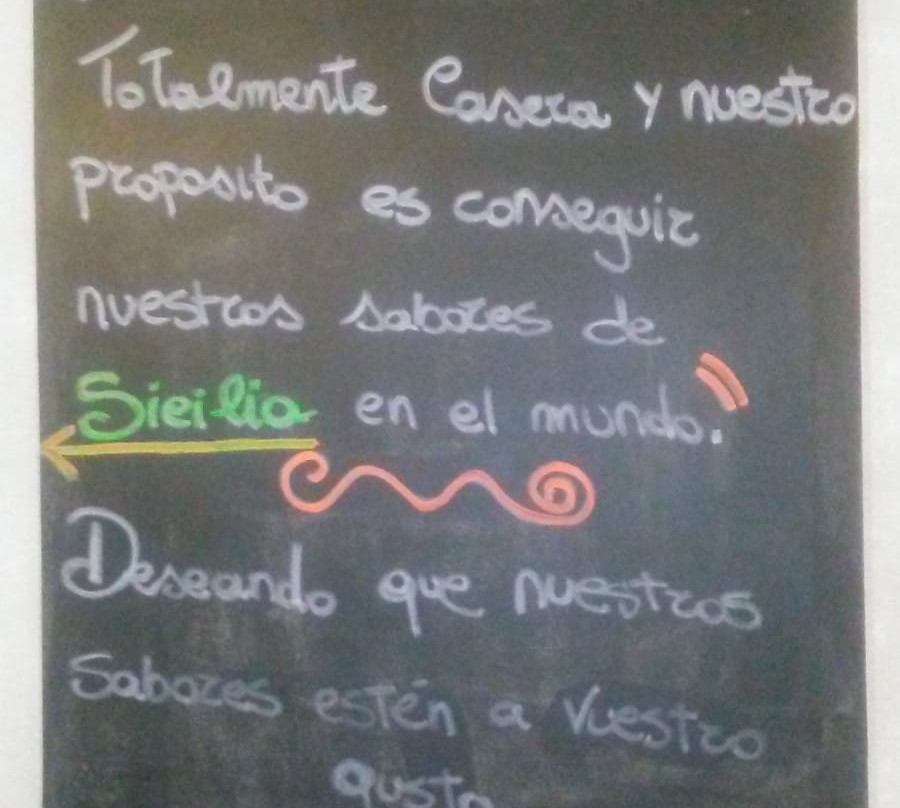 Totalmente Casera y nuestro
proposito es conseguir
nuestros sabores de
Sicilia en el mundo."
Deseando que nuestros
Sabores estén a Vuestro
gusto